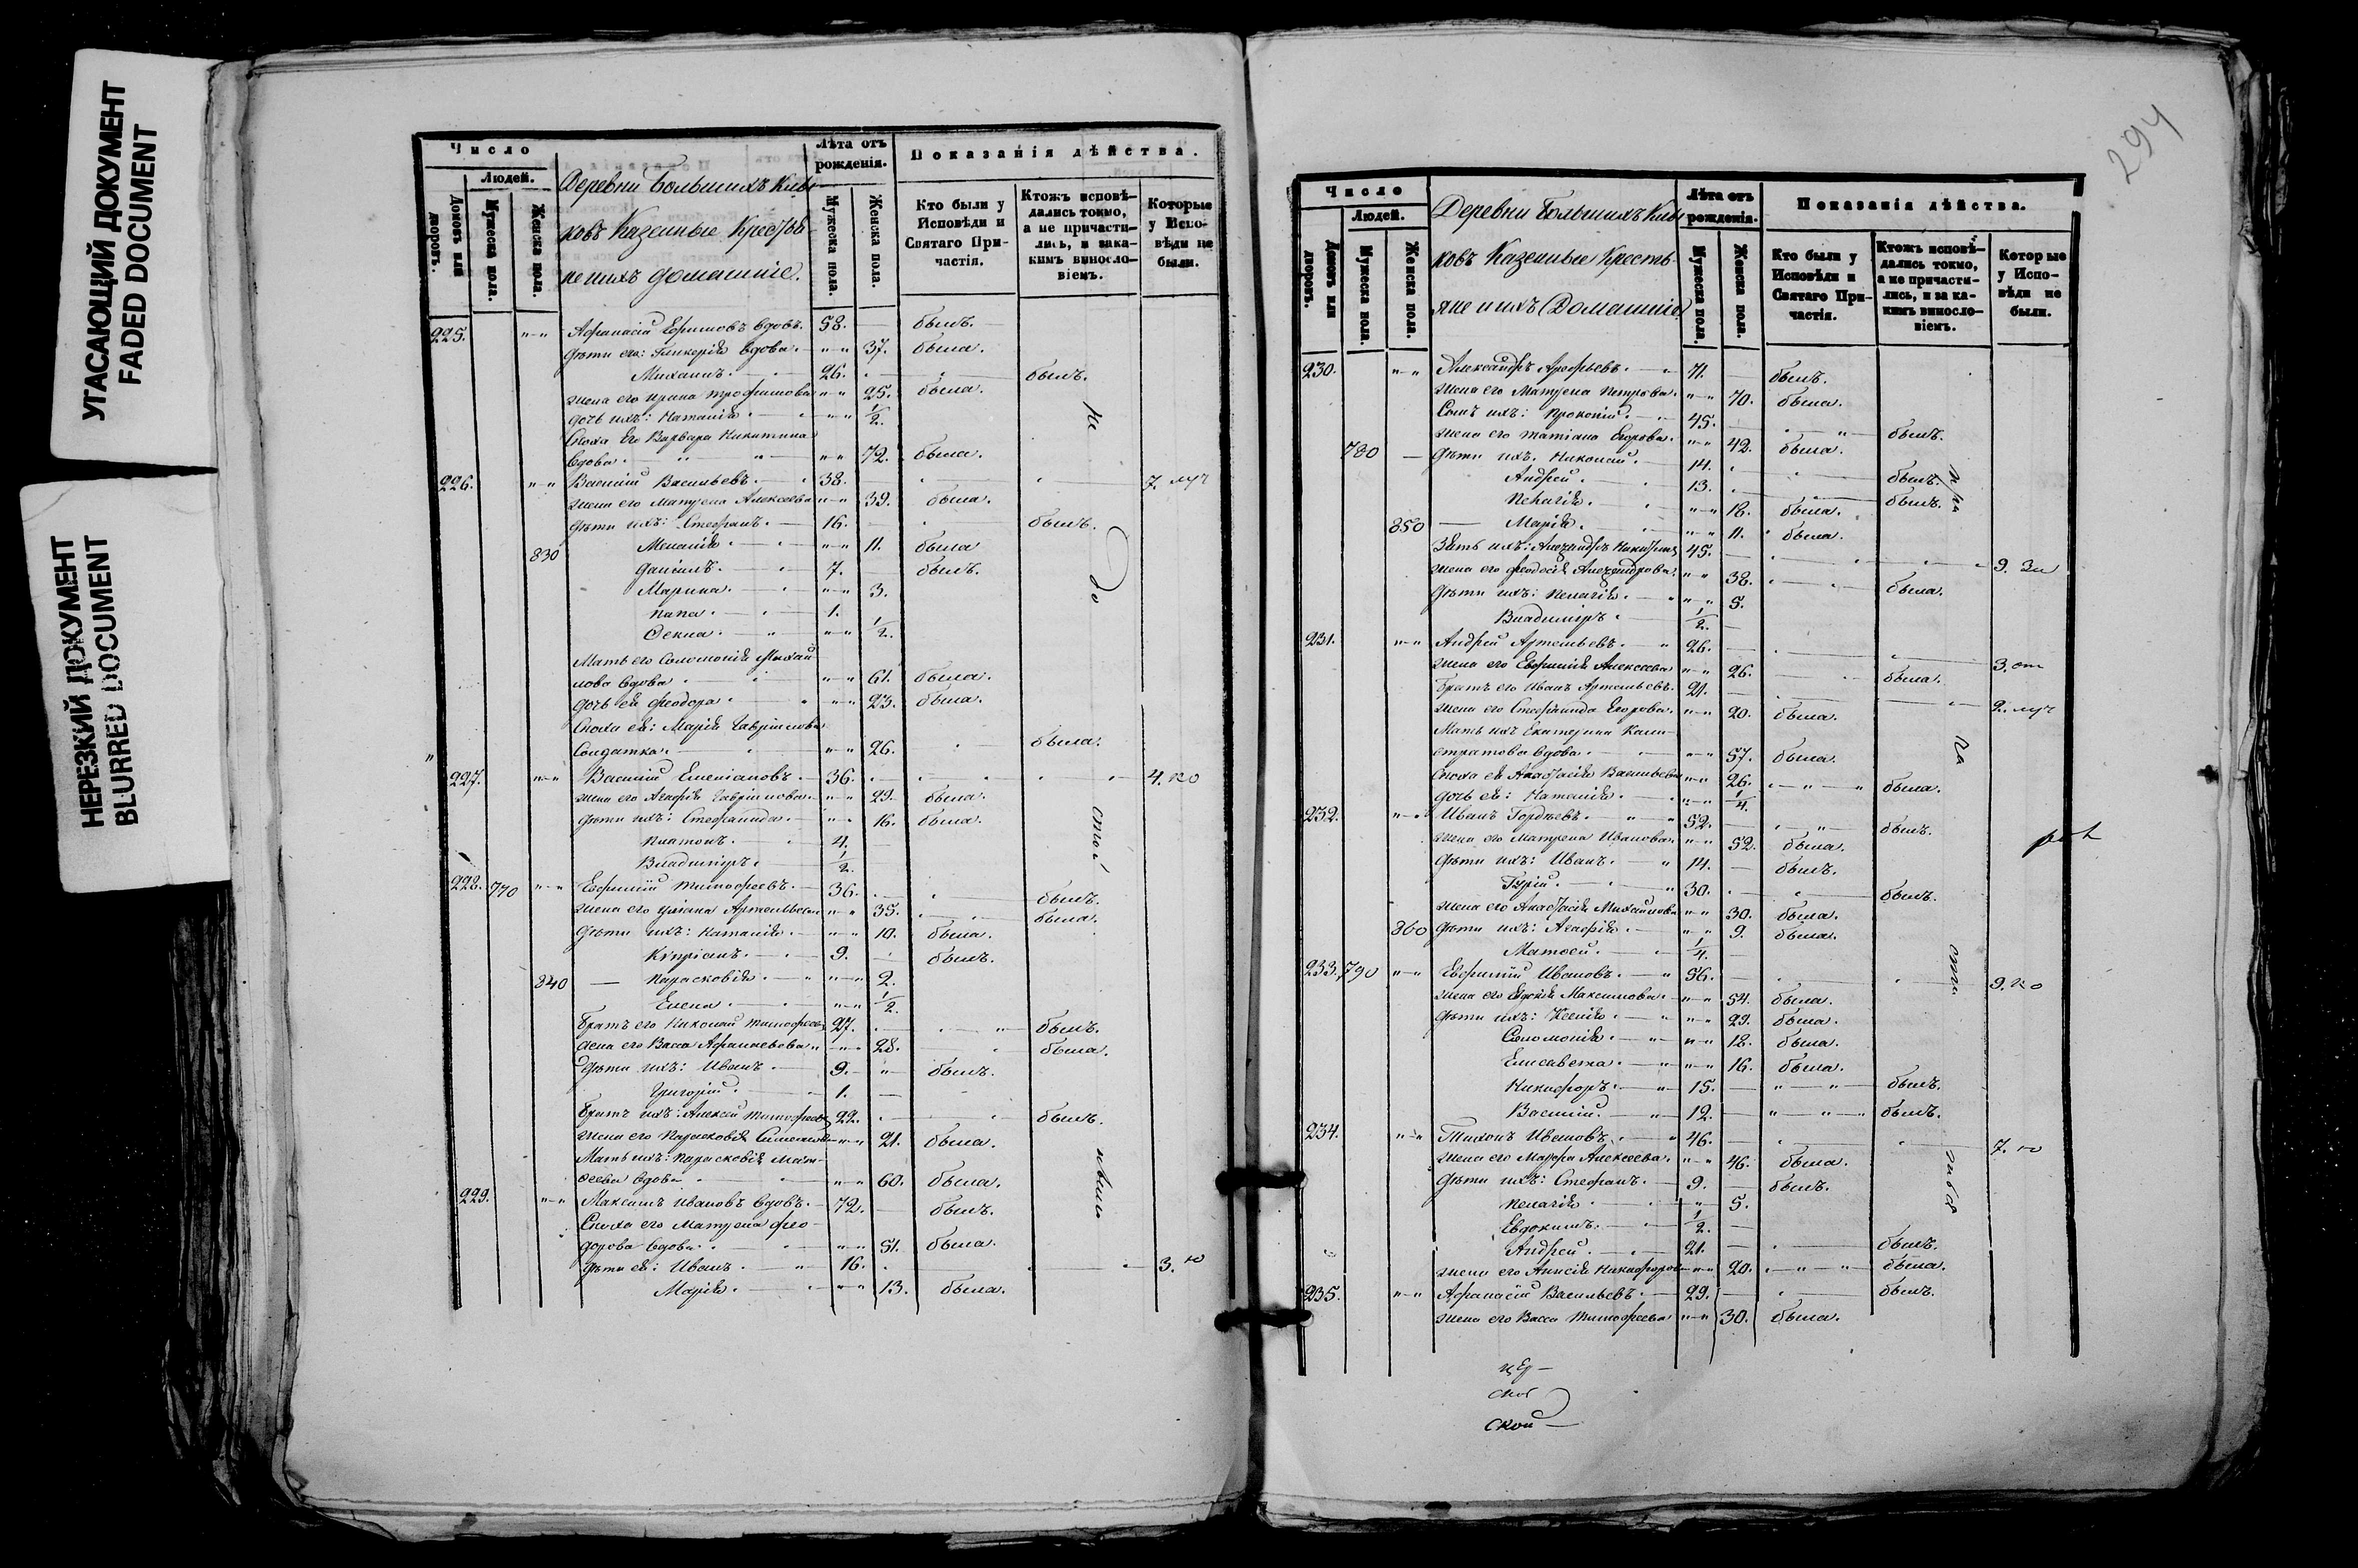 УГАСАЮЩИЙ ДОКУМЕНТ
FADED DOCUMENT
НЕРЕЗКИЙ ДОКУМЕНТ
BLURRED DOCUMENT
Число
Людей.
Домовъ или дворовъ.
Мужеска пола.
Женска пола.
Деревни Большихъ
Казенные
домашніе.
Лѣта отъ рожденія.
Мужеска пола.
Женска пола.
Показанія дѣйства.
Кто были у Исповѣди и Святаго Причастія.
Ктожъ исповѣдались токмо, а не причастились, и за какимъ винословіемъ.
Которые у Исповѣди не были.
225. Афанасій Ефимовъ вдовъ. 58. былъ.
дѣти его: Гликерія вдова. 37. была.
Михаилъ. 26. былъ.
жена его Ирина Трофимова 25. была.
дочь ихъ: Наталія 1/2.
Сноха его Варвара Никитина
вдова. 72. была.
226. Василій Васильевъ. 38. 7.
жена его Матрена Алексеева 39. была.
дѣти ихъ: Стефанъ. 16. былъ.
830 Меланія 11. была
Даніилъ. 7. былъ.
Марина. 3.
1.
Фекла. 1/2.
Мать его Соломонія Михай-
лова вдова 61. была.
дочь ей Феодора 23. была.
Сноха ей: Марія Гавріилова
Солдатка. 26. была.
227. Василій Емеліановъ. 36. 4.
жена его Агафія Гавріилова 29. была.
дѣти ихъ: Стефанида. 16. была.
Платонъ. 4.
Владиміръ. 1/2.
228. 770 Евфимій Тимофеевъ. 36. былъ.
жена его Уліана Артемьева 35. была.
дѣти ихъ: Наталія. 10. была.
Кипріанъ. 9. былъ.
840 Парасковія 2.
Елена 1/2.
Братъ его Николай Тимофеевъ 27. былъ.
жена его Васса 28. была.
дѣти ихъ: Иванъ. 9. былъ.
Григорій. 1.
Братъ ихъ: Алексей Тимофеевъ 22. былъ.
жена его Парасковія 21. была.
Мать ихъ: Парасковія Мат-
феева вдова 60. была.
229. Максимъ Ивановъ вдовъ. 72. былъ.
Сноха его Матрена Фео-
дорова вдова. 51. была.
дѣти ей: Иванъ. 16. 3.
Марія. 13. была.
Не до стои ніемъ
294
Число
Людей.
Домовъ или дворовъ.
Мужеска пола.
Женска пола.
Деревни Большихъ
ковъ Казенные Кресть
яне и ихъ Домашніе
Лѣта отъ рожденія.
Мужеска пола.
Женска пола.
Показанія дѣйства.
Кто были у Исповѣди и Святаго Причастія.
Ктожъ исповѣдались токмо, а не причастились, и за какимъ винословіемъ.
Которые у Исповѣди не были.
230. Александръ Арефьевъ. 71. былъ.
жена его Матрена Петрова. 70. была.
Сынъ ихъ: Прокопій. 45. былъ.
жена его Татіана Егорова. 42. была.
780 дѣти ихъ: Николай. 14. былъ.
Андрей. 13. былъ.
Пелагія. 18. была.
850 Марія. 11. была.
Зять ихъ: Александръ 45. 9.
жена его Феодосія Александрова. 38. была.
дѣти ихъ: Пелагія. 5.
Владиміръ. 1/2.
231. Андрей Артемьевъ. 26. 3.
жена его Евфимія Алексеева 26. была.
Братъ его Иванъ Артемьевъ. 21. 2.
жена его Стефанида Егорова. 20. была.
Мать ихъ Екатерина Кали-
стратова вдова 57. была.
Сноха ей Анастасія Васильева 26. была.
дочь ей: Наталія. 1/4.
232. Иванъ Гордѣевъ. 52. былъ.
жена его Матрена Иванова 52. была.
дѣти ихъ: Иванъ. 14. былъ.
Гурій. 30. былъ.
жена его Анастасія Михайлова 30. была.
860 дѣти ихъ: Агафія. 9. была.
Матфей. 1/4.
233. 790 Евфимій Ивановъ. 56. 9.
жена его Максимова. 54. была.
дѣти ихъ: Ксенія. 22. была.
Соломонія. 18. была.
Елисавета. 16. была.
Никифоръ. 15. былъ.
Василій. 12. былъ.
234. Тихонъ Ивановъ. 46. 7.
жена его Марфа Алексеева. 46. была.
дѣти ихъ: Стефанъ. 9. былъ.
Пелагія 5.
Евдокимъ. 1/2.
Андрей. 21. былъ.
жена его Анисія 20. была.
235. Афанасій Васильевъ. 29. былъ.
жена его Васса Тимофеева 30. была.
ской